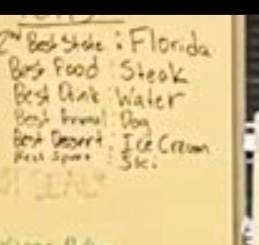 2nd Best State : Florida
Best Food : Steak
Best Drink : Water
Best Animal : Dog
Best Desert : Ice Cream
Best Sport : Ski